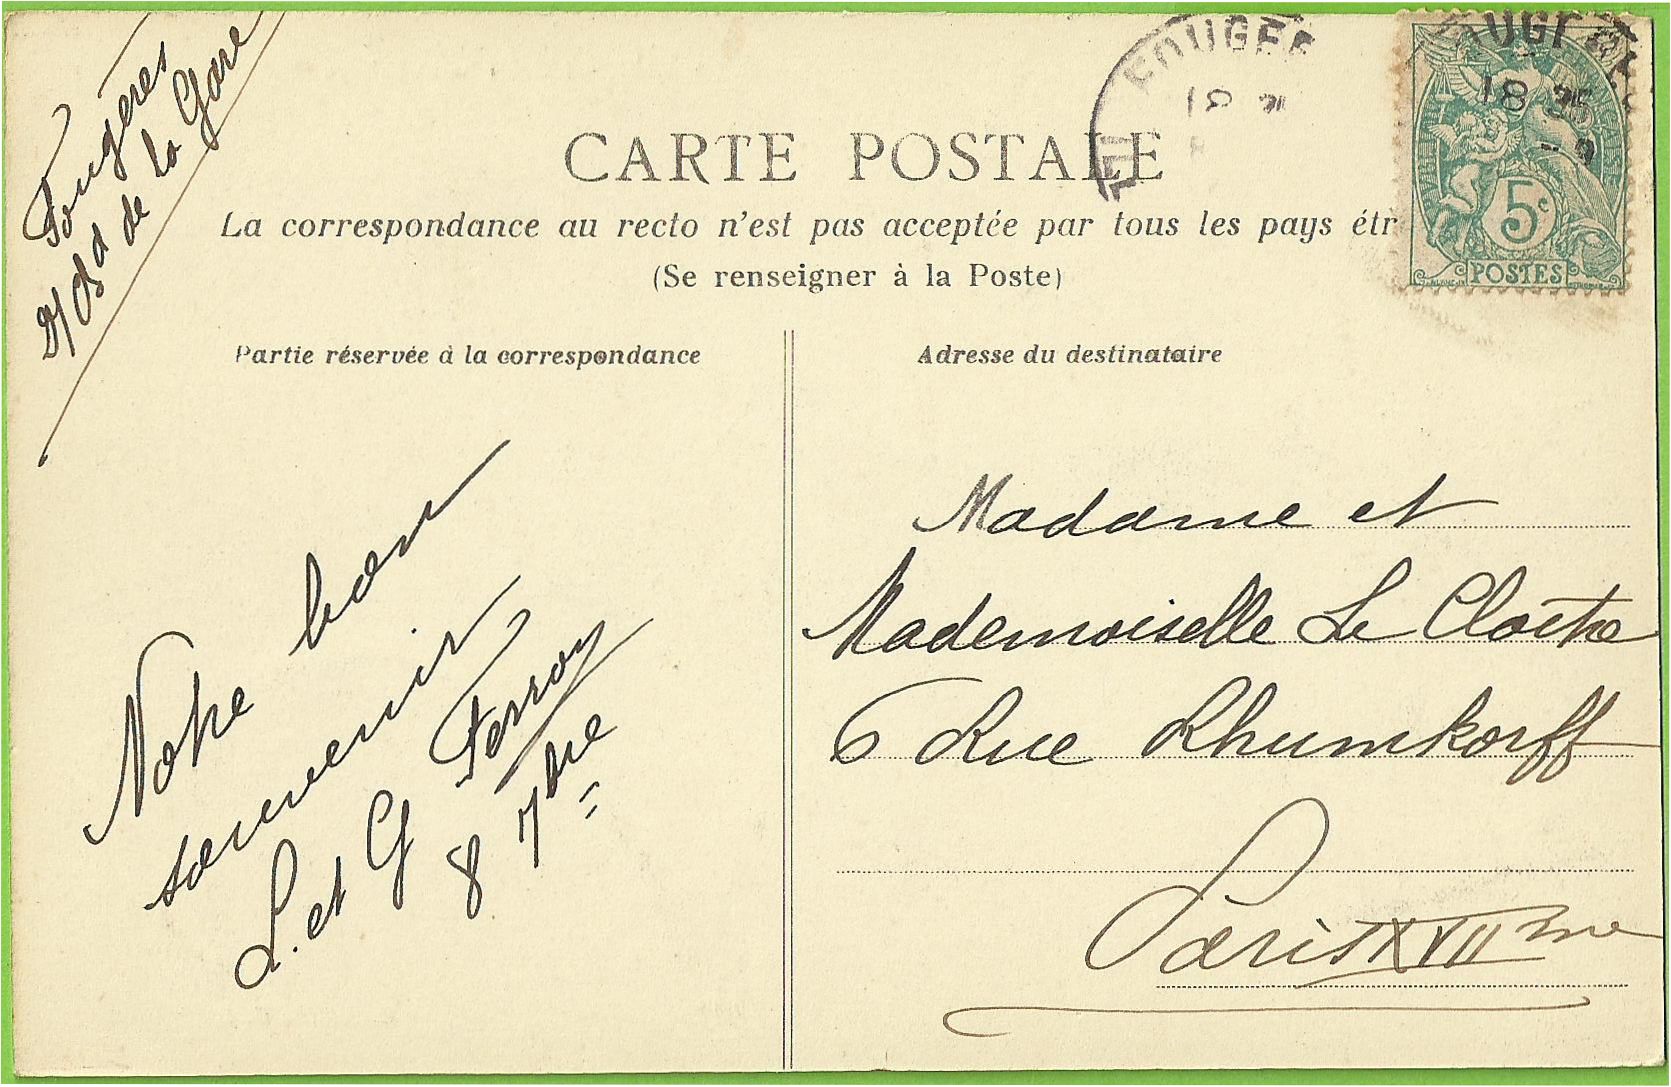 Fougères
21 Bd de la Gare
FOUGER
18
FOUGER
18 35
CARTE POSTALE
La correspondance au recto n'est pas acceptée par tous les pays étr
(Se renseigner à la Poste)
5c
POSTES
Partie réservée à la correspondance
Adresse du destinataire
Notre bon
souvenir
L. et G Ferron
8 7bre
Madame et
Mademoiselle Le Cloître
6 Rue Rhumkorff
Paris XVII me